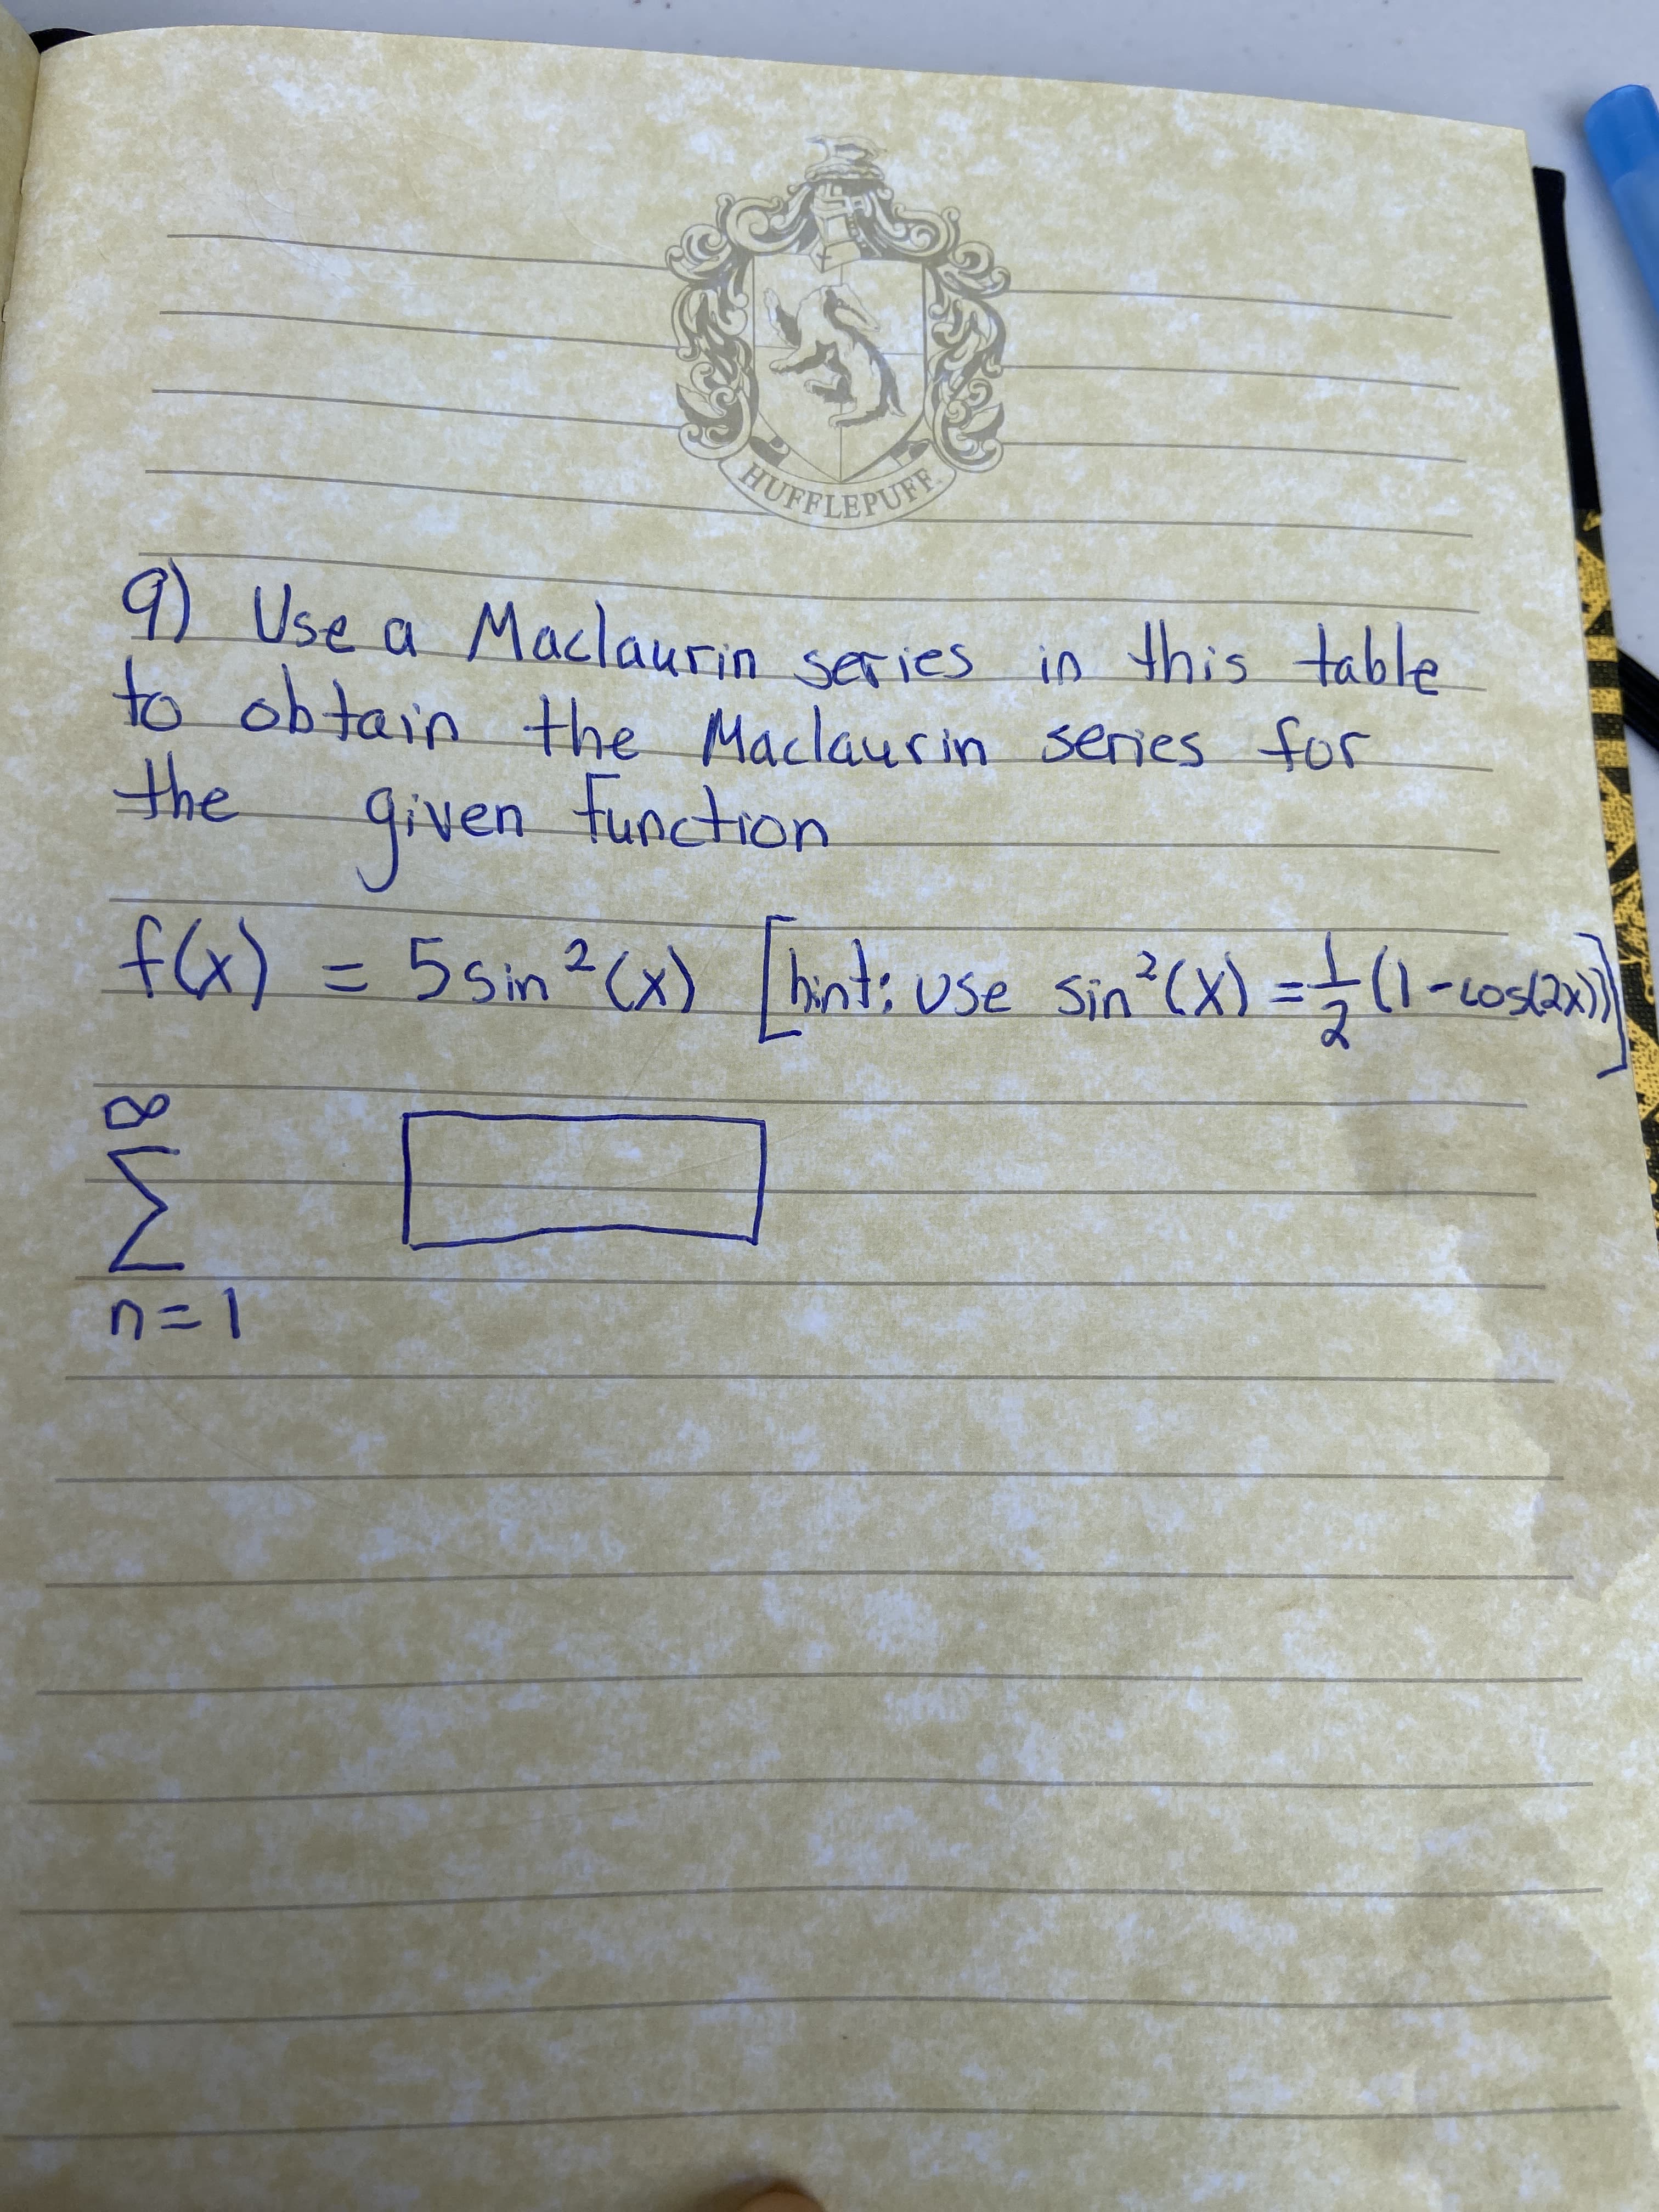 HUFFLEPUFF
9) Use a Maclaurin series in this table
to obtain the Maclaurin series for
the given function
f(x) = 5sin²(x) [hint: use sin²(x) = 1/2 (1-cos(2x))]
∞
Σ
n=1